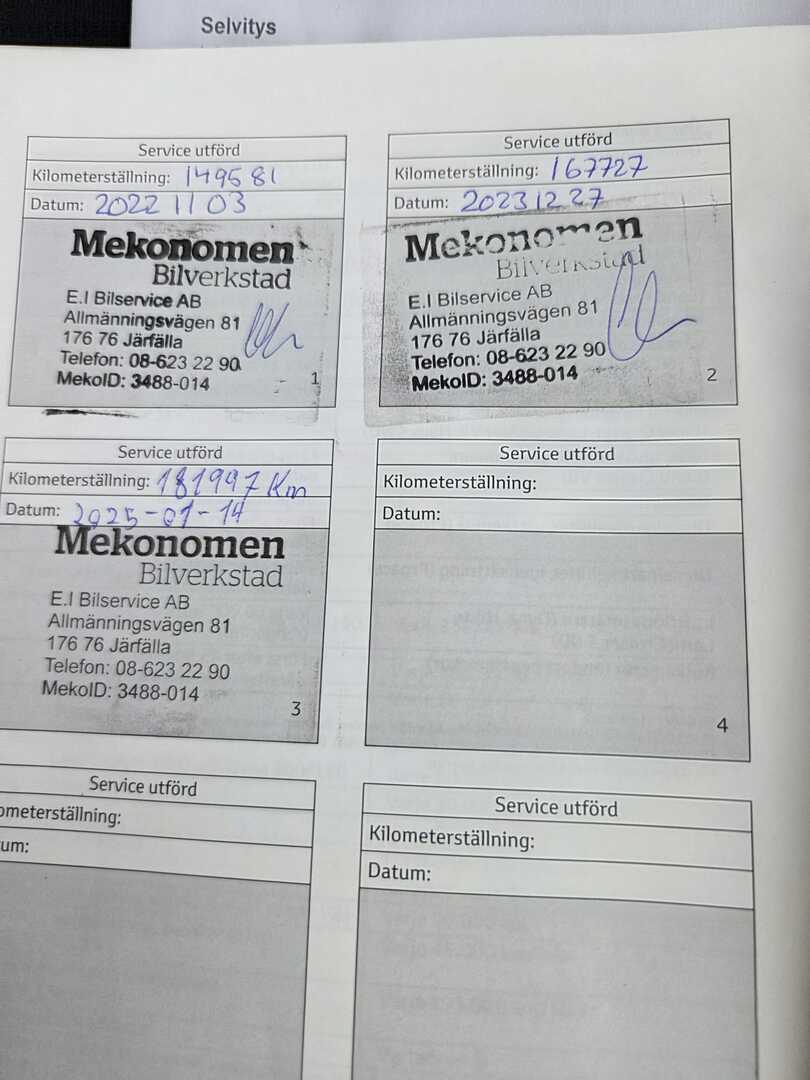 Selvitys
Service utförd
Kilometerställning: 149581
Datum: 2022 11 03
Mekonomen
Bilverkstad
E.I Bilservice AB
Allmänningsvägen 81
176 76 Järfälla
Telefon: 08-623 22 90
MekoID: 3488-014
1
Service utförd
Kilometerställning: 167727
Datum: 2023 12 27
Mekonomen
Bilverkstad
E.I Bilservice AB
Allmänningsvägen 81
176 76 Järfälla
Telefon: 08-623 22 90
MekoID: 3488-014
2
Service utförd
Kilometerställning: 181997 Km
Datum: 2025-01-14
Mekonomen
Bilverkstad
E.I Bilservice AB
Allmänningsvägen 81
176 76 Järfälla
Telefon: 08-623 22 90
MekoID: 3488-014
3
Service utförd
Kilometerställning:
Datum:
4
Service utförd
ometerställning:
um:
Service utförd
Kilometerställning:
Datum: